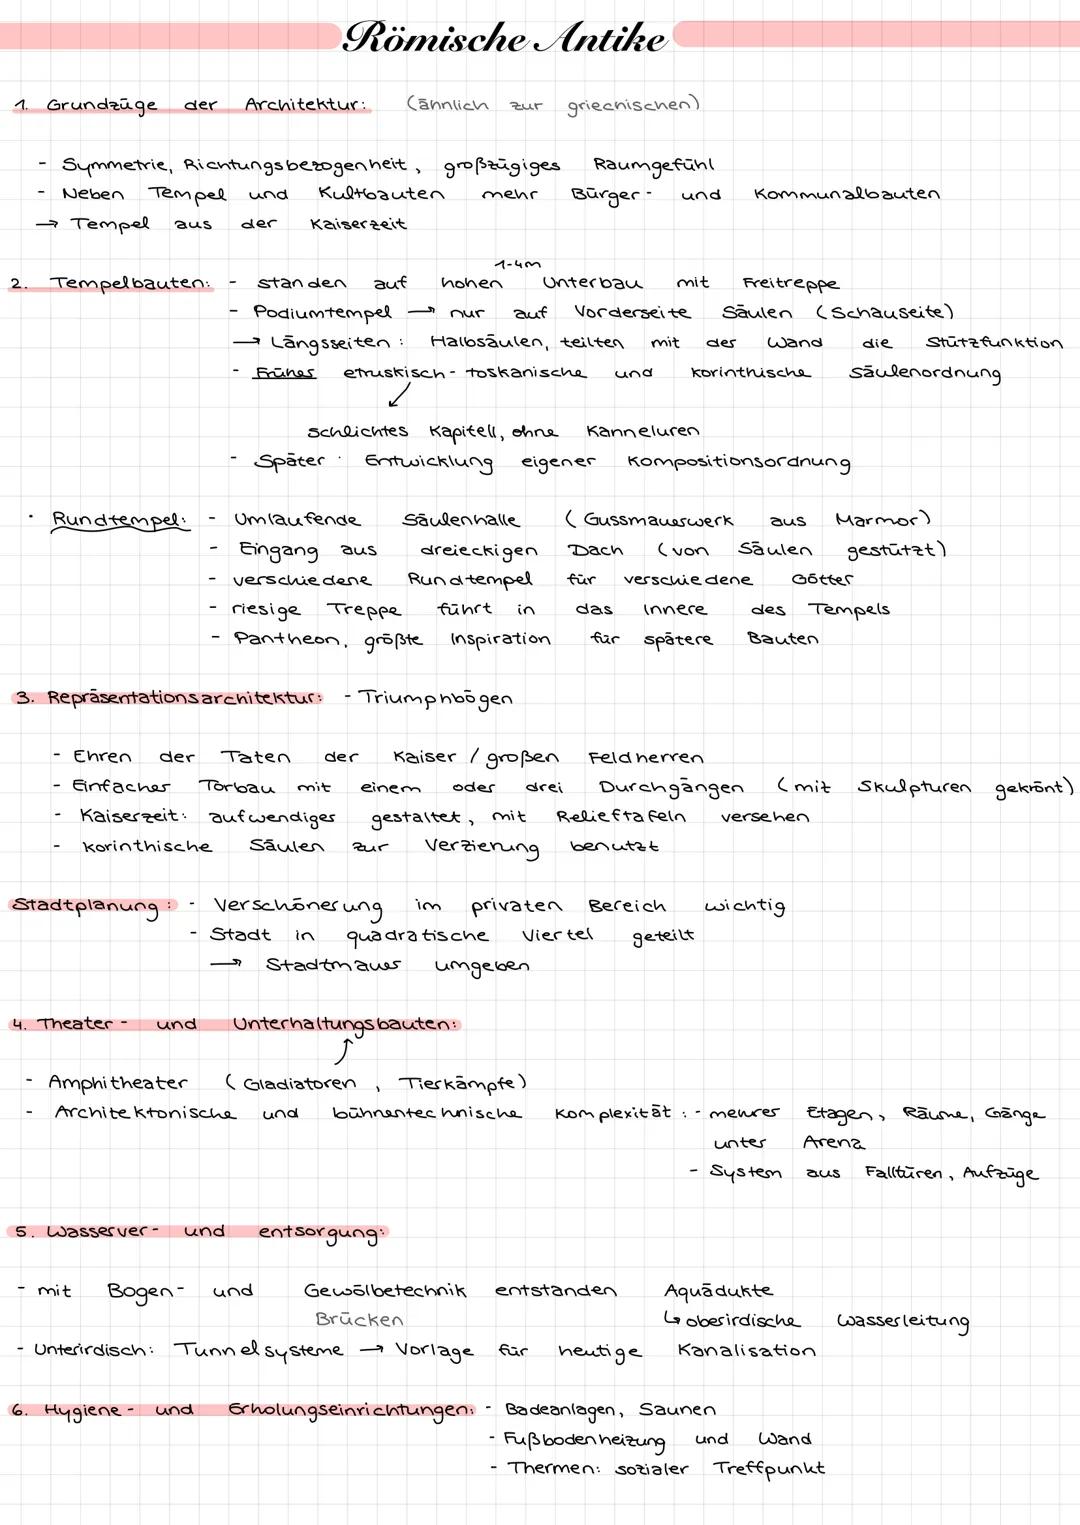 Römische Antike
1. Grundzüge der Architektur: (ähnlich zur griechischen)
- Symmetrie, Richtungsbezogenheit, großzügiges Raumgefühl
- Neben Tempel und Kultbauten mehr Bürger- und Kommunalbauten
→ Tempel aus der Kaiserzeit
1-4m
2. Tempelbauten: - standen auf hohen Unterbau mit Freitreppe
- Podiumtempel → nur auf Vorderseite Säulen (Schauseite)
→ Längsseiten: Halbsäulen, teilten mit der Wand die Stützfunktion
- Früher etruskisch-toskanische und korinthische Säulenordnung
↙
schlichtes Kapitell, ohne Kanneluren
- Später: Entwicklung eigener Kompositionsordnung
· Rundtempel: - Umlaufende Säulenhalle (Gussmauerwerk aus Marmor)
- Eingang aus dreieckigen Dach (von Säulen gestützt)
- verschiedene Rundtempel für verschiedene Götter
- riesige Treppe führt in das Innere des Tempels
- Pantheon, größte Inspiration für spätere Bauten
3. Repräsentationsarchitektur: - Triumphbögen
- Ehren der Taten der Kaiser / großen Feldherren
- Einfacher Torbau mit einem oder drei Durchgängen (mit Skulpturen gekrönt)
- Kaiserzeit: aufwendiges gestaltet, mit Relieftafeln versehen
- korinthische Säulen zur Verzierung benutzt
Stadtplanung: - Verschönerung im privaten Bereich wichtig
- Stadt in quadratische Viertel geteilt
→ Stadtmauer umgeben
4. Theater- und Unterhaltungsbauten:
- Amphitheater (Gladiatoren, Tierkämpfe)
- Architektonische und bühnentechnische Komplexität: - mehrer Etagen, Räume, Gänge
unter Arena
- System aus Falltüren, Aufzüge
5. Wasserver- und entsorgung:
- mit Bogen- und Gewölbetechnik entstanden Aquädukte
Brücken ↳ oberirdische Wasserleitung
- Unterirdisch: Tunnelsysteme → Vorlage für heutige Kanalisation
6. Hygiene- und Erholungseinrichtungen: - Badeanlagen, Saunen
- Fußbodenheizung und Wand
- Thermen: sozialer Treffpunkt